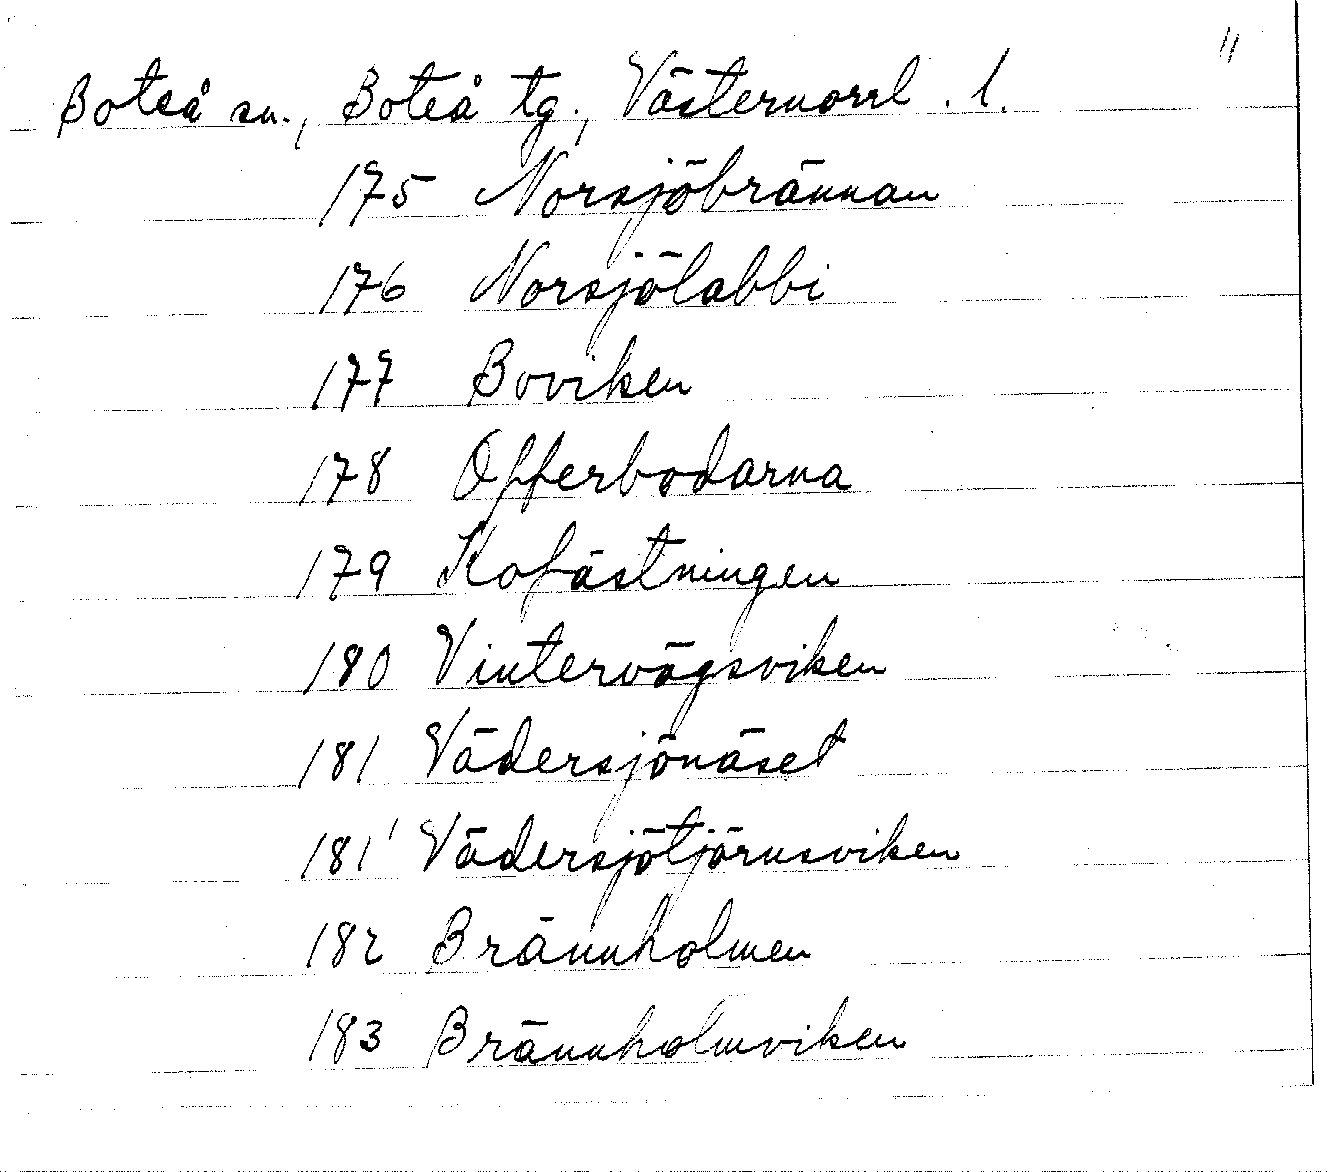 11
Boteå sn., Boteå tg., Västernorrl. l.
175 Norsjöbrännan
176 Norsjölabbi
177 Boviken
178 Offerbodarna
179 Kofästningen
180 Vintervägsviken
181 Vädersjönäset
181' Vädersjötjärnsviken
182 Brännholmen
183 Brännholmviken